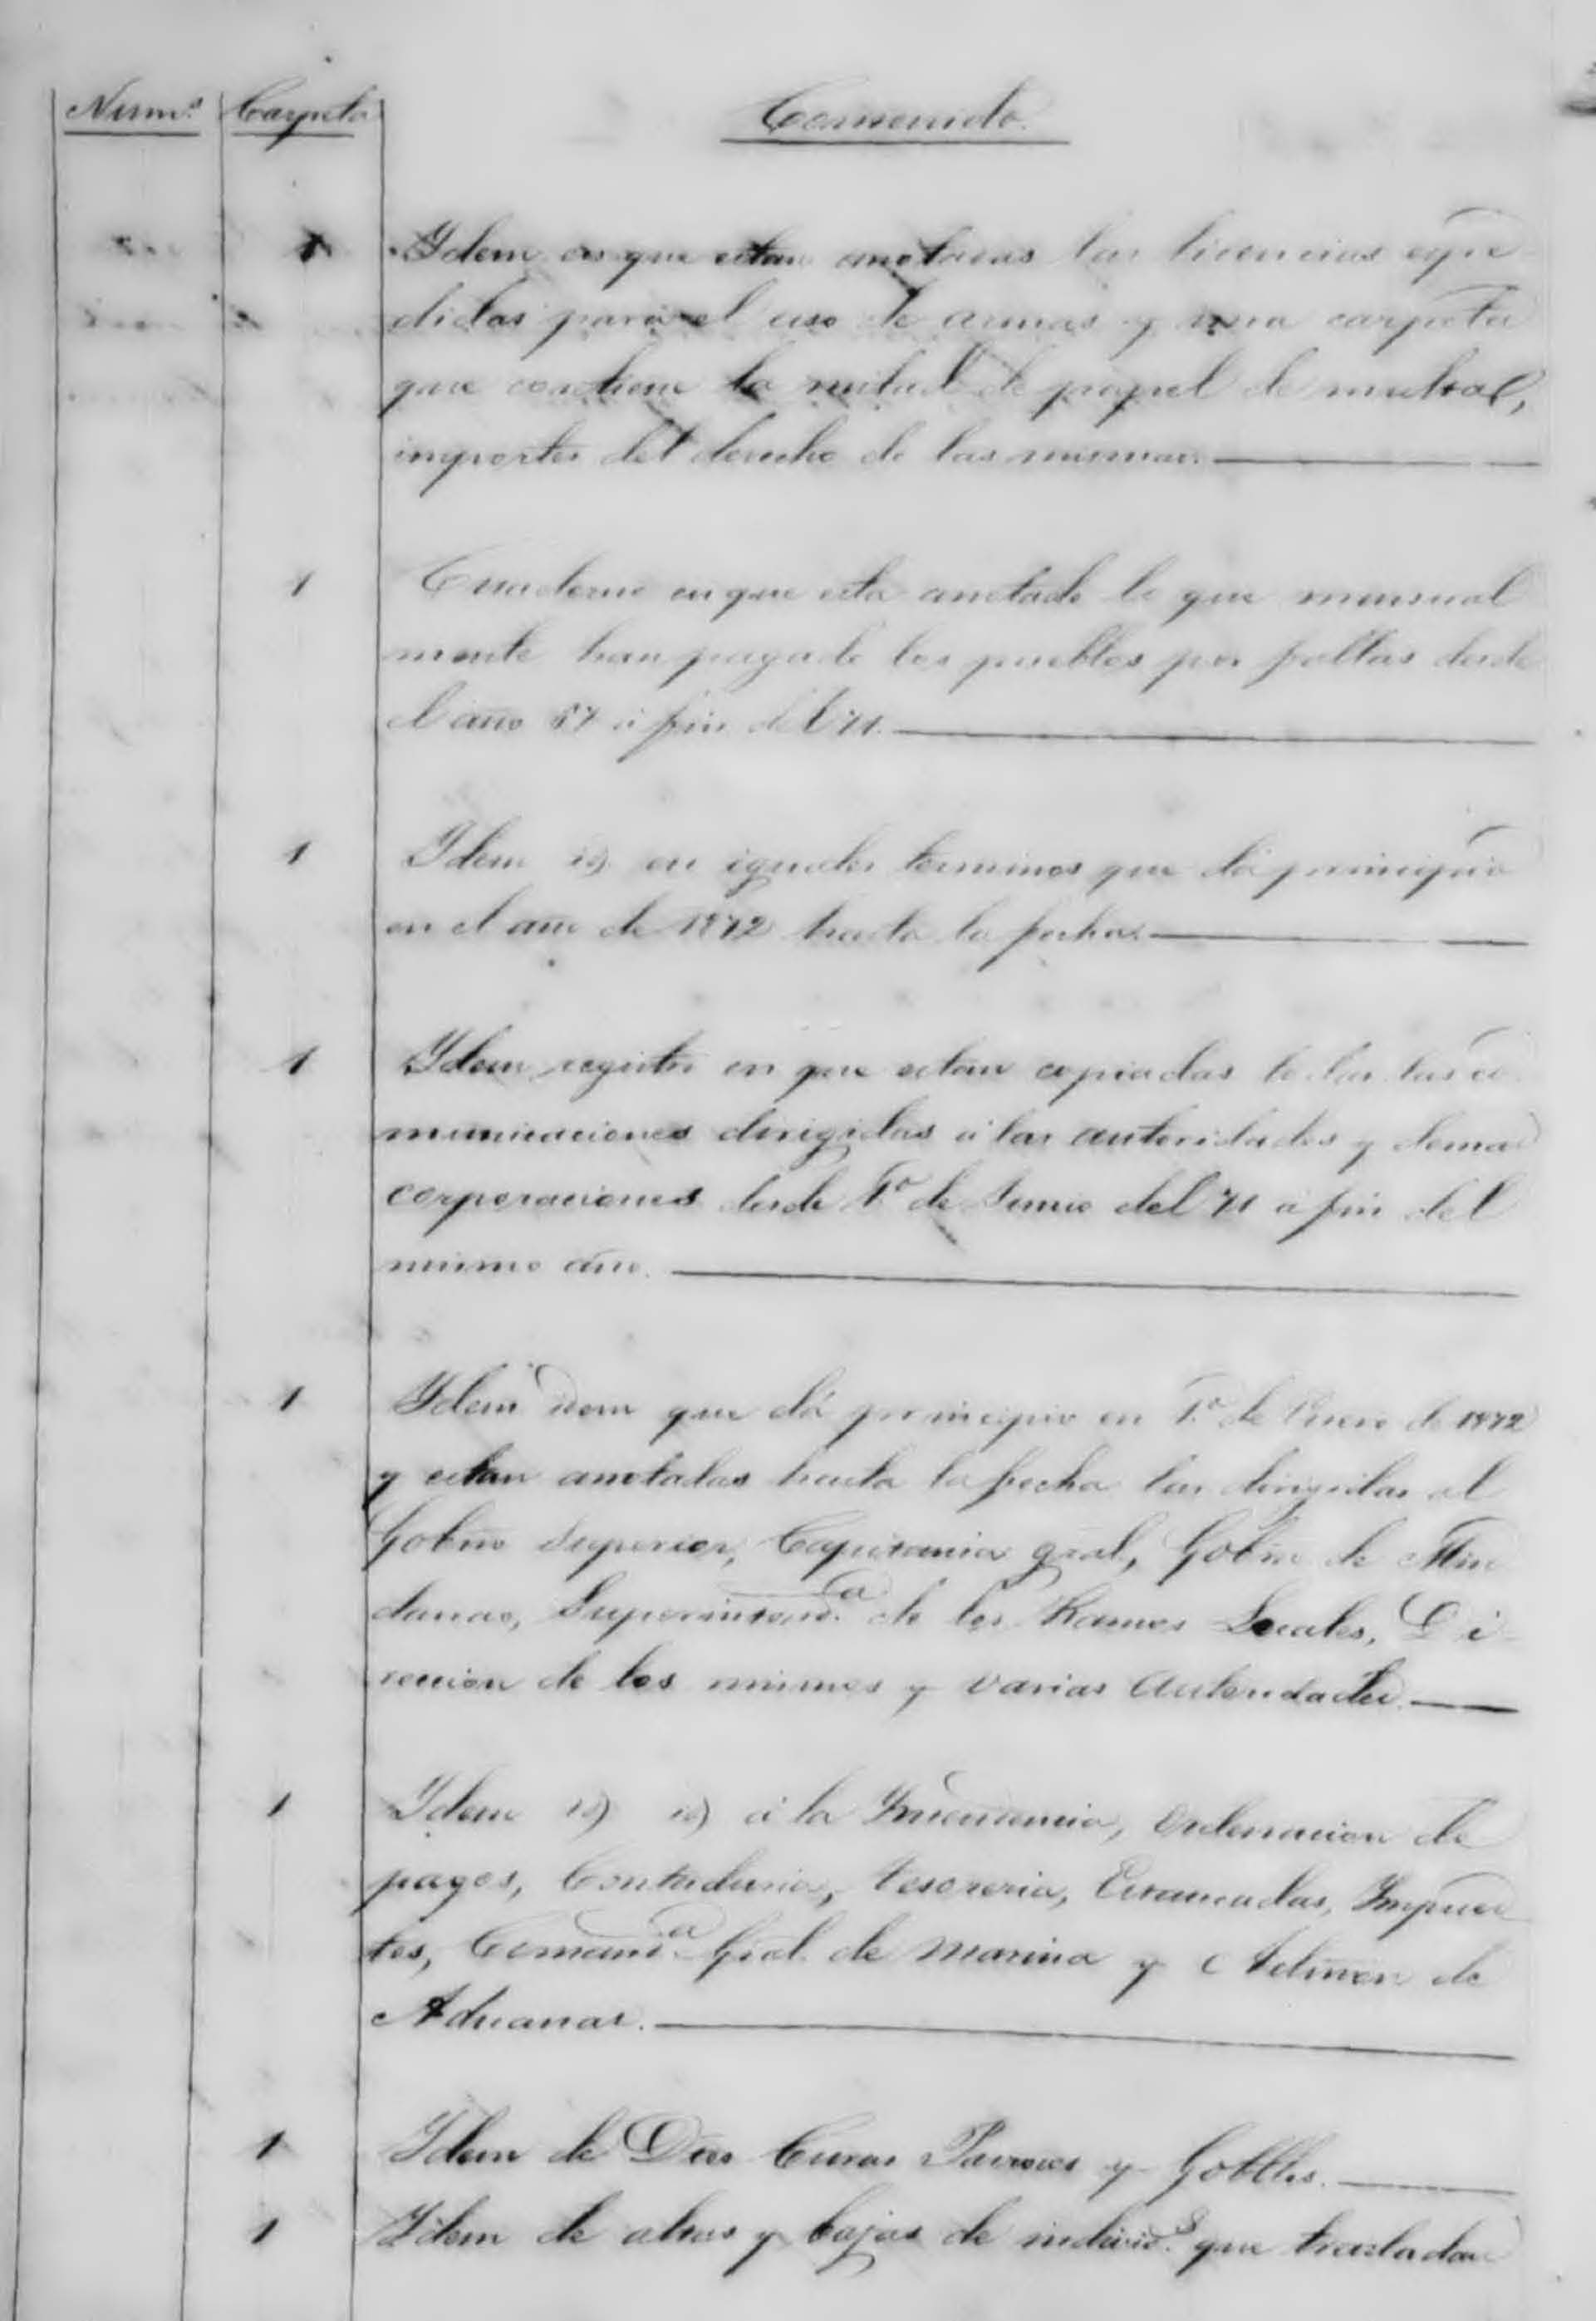 Num.s Carpeta Contenido.
1 Idem en que estan anotadas las licencias espe
didas para el uso de armas y una carpeta
que contiene la mitad de papel de multas,
importes del derecho de las mismas.
1 Cuaderno en que esta anotado lo que mensual
mente han pagado los pueblos por fallas desde
el año 67 á fin del 71.
1 Idem id. en iguales terminos que dá principio
en el año de 1872 hasta la fecha.
1 Idem registro en que estan copiadas todas las co
municaciones dirigidas á las autoridades y demas
corporaciones desde 1.o de Junio del 71 á fin del
mismo año.
1 Idem idem que dá principio en 1.o de Enero de 1872
y estan anotadas hasta la fecha las dirigidas al
Gobno Superior, Capitania gral, Gobno de Min
danao, Superintend.a de los Ramos Locales, Di
reccion de los mismos y varias Autoridades.
1 Idem id id á la Intendencia, Ordenacion de
pagos, Contaduria, Tesoreria, Estancadas, Impues
tos, Comand.a Gral. de Marina y Admon de
Aduanas.
1 Idem de Dres Curas Parrocos y Gobllos.
1 Idem de altas y bajas de individ.s que trasladan